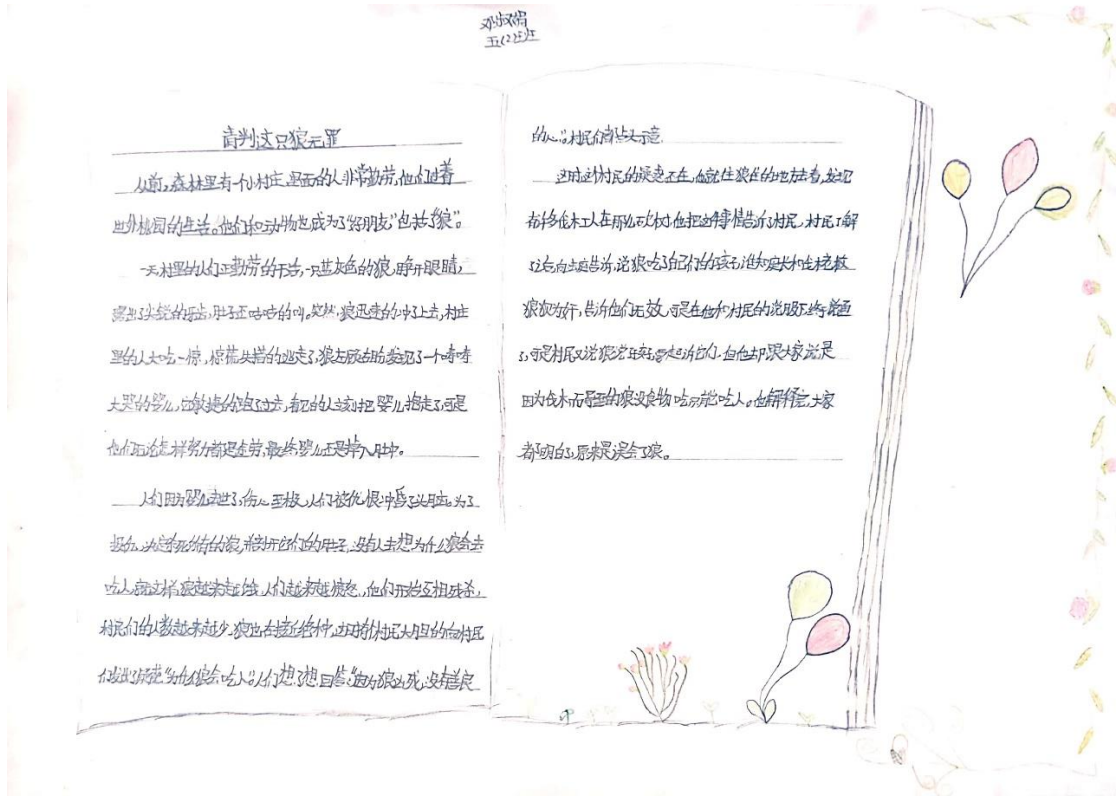 五(2)班
审判这只狼无罪
从前,森林里有一个小村庄,里面的人非常勤劳,他们过着
世外桃园的生活。他们和动物也成为了好朋友"包括了狼"。
一天村里的人们正勤劳的干活,一只蓝灰色的狼,睁开眼睛,
露出了尖锐的牙齿,肚子正咕咕的叫。突然,狼迅速的冲了上去,村庄
里的人大吃一惊,惊慌失措的逃走了,狼左顾右盼发现了一个嚎嚎
大哭的婴儿,它敏捷的跑了过去,有的人立刻把婴儿抱走了,可是
他们无论怎样努力都是徒劳,最终婴儿还是掉入肚中。
人们因为婴儿去世了,伤心至极,人们被仇恨冲昏了头脑。为了
报仇,决定杀死所有的狼,并剖开它们的肚子,没有人去想为什么狼会去
吃人,就这样,狼越来越饿,人们越来越愤怒,他们开始互相残杀,
村民们的人数越来越少,狼也在接近绝种,这时村民大胆的向村民
们发出了疑惑"为什么狼会吃人"人们想了想回答"因为狼凶残,没有善良
的心"村民们都点头示意.
这时这村民的疑惑还在,他就往狼住的地方去看,发现
有许多伐木工人在那儿砍树,他把这件事情告诉了村民,村民了解
了之后向法庭告诉,说狼吃了自己们的孩子,谁知庭长和伐木老板
狼狈为奸,告诉他们无效,可是在他和村民的说服下终于说通
了,可是村民又说狼也有错,要起诉它们.但他却跟大家说是
因为伐木而导致的狼没食物吃只能吃人。他解释完,大家
都明白了,原来是误会了狼。